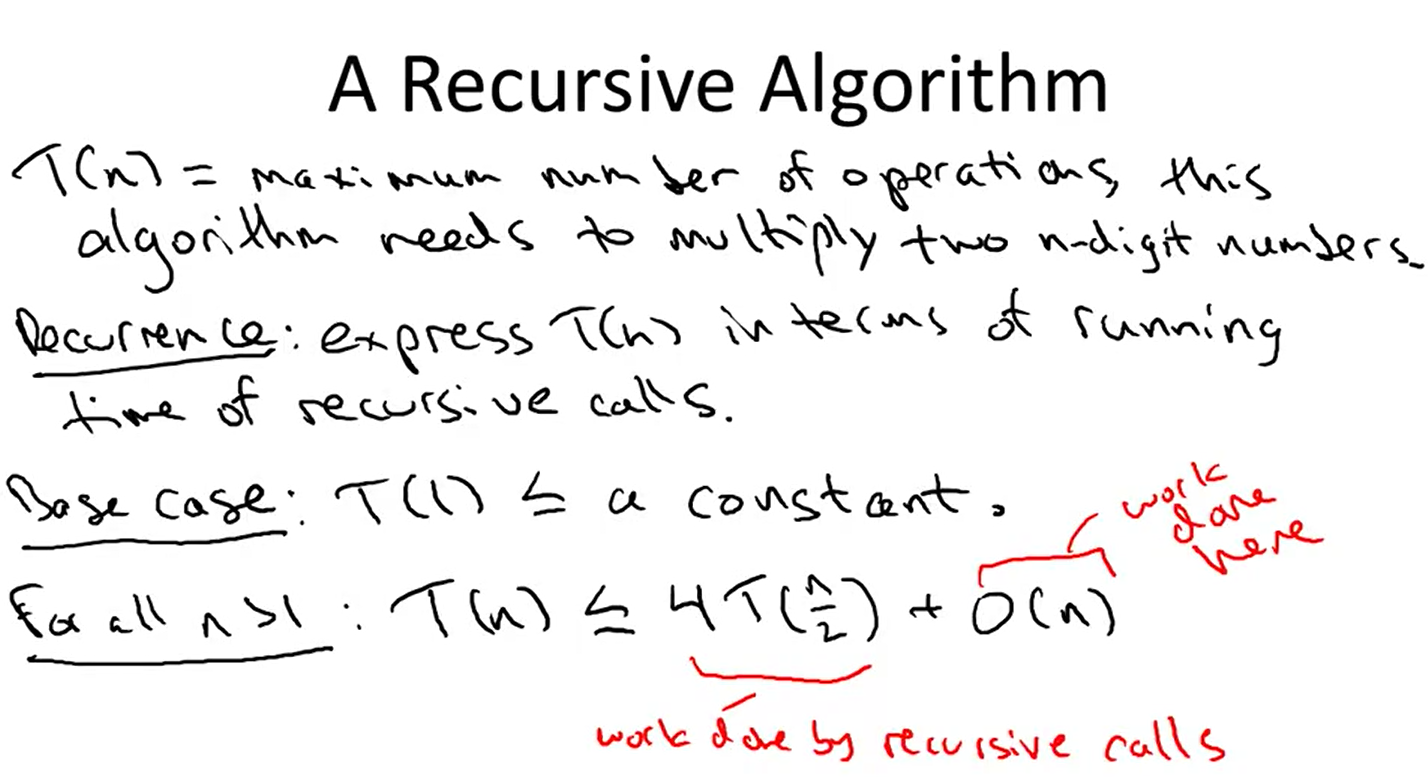 A Recursive Algorithm
T(n) = maximum number of operations, this
algorithm needs to multiply two n-digit numbers.
Recurrence: express T(n) in terms of running
time of recursive calls.
Base case: T(1) ≤ a constant.
work
done
here
For all n>1: T(n) ≤ 4T(n/2) + O(n)
work done by recursive calls